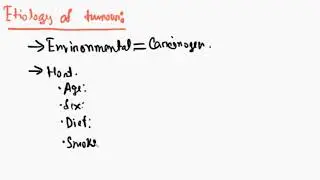 Etiology of tumour:
→ Environmental = Carcinogen.
→ Host.
• Age:
• Sex:
• Diet:
• Smoke.